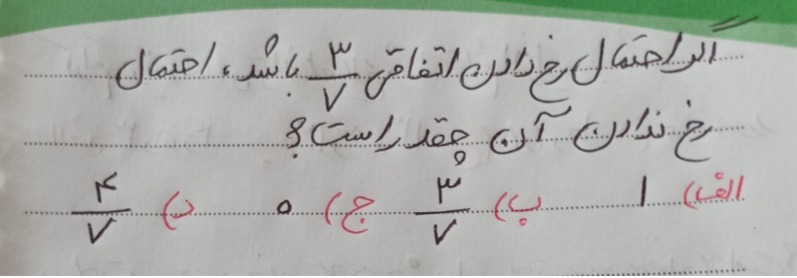 اگر احتمال رخ دادن اتفاقی ۳/۷ باشد، احتمال
رخ ندادن آن چقدر است؟
الف) ۱ ب) ۳/۷ ج) ۰ د) ۴/۷